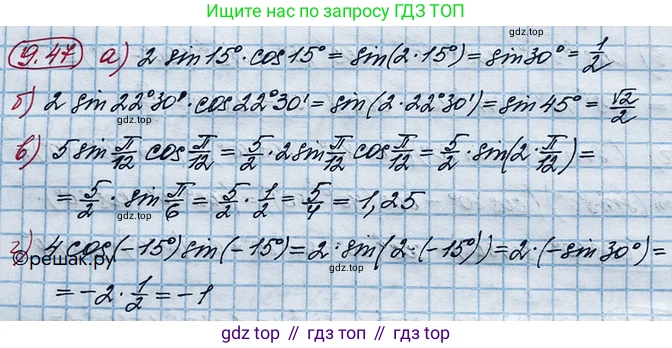 Ищите нас по запросу ГДЗ ТОП
9.47 а) 2 sin15°·cos15° = sin(2·15°) = sin30° = 1/2
б) 2 sin22°30'·cos22°30' = sin(2·22°30') = sin45° = √2/2
в) 5 sin π/12 cos π/12 = 5/2 · 2 sin π/12 cos π/12 = 5/2 · sin(2· π/12) =
= 5/2 · sin π/6 = 5/2 · 1/2 = 5/4 = 1,25
г) 4 cos(-15°) sin(-15°) = 2·sin(2·(-15°)) = 2·(-sin30°) =
©решак.ру
= -2· 1/2 = -1
gdz.top // гдз.топ // gdz.top // гдз.топ